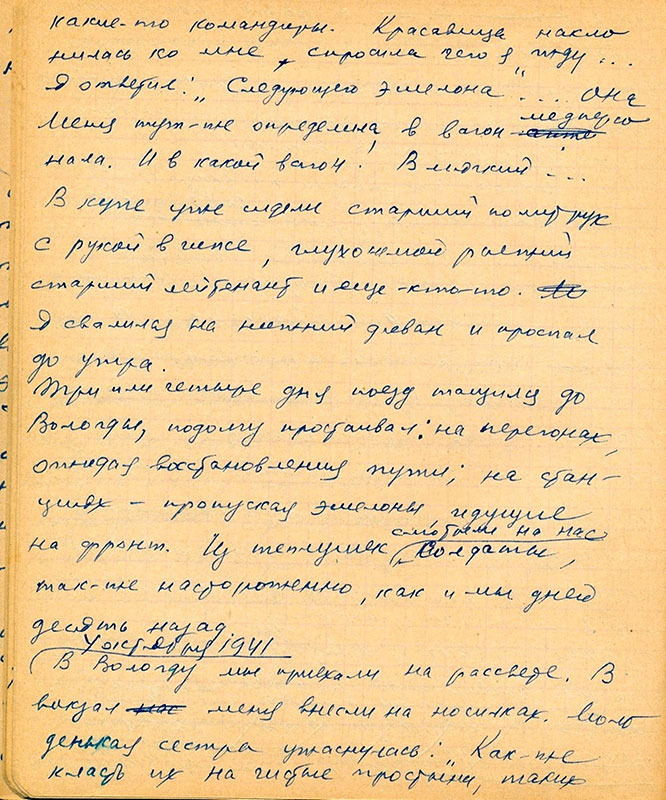 какие-то командиры. Красавица накло
нилась ко мне, спросила чего я жду...
Я ответил: „Следующего эшелона".... Она
медперсо
меня тут-же определила в вагон
нала. И в какой вагон! В мягкий...
В купе уже сидели старший политрук
с рукой в гипсе, глухонемой рыжий
старший лейтенант и еще-кто-то.
Я свалился на нижний диван и проспал
до утра.
Три или четыре дня поезд тащился до
Вологды, подолгу простаивал: на перегонах,
ожидая восстановления пути; на стан-
циях - пропуская эшелоны идущие
смотрели на нас
на фронт. Из теплушек солдаты,
так-же настороженно, как и мы дней
десять назад
4 октября 1941
В Вологду мы приехали на рассвете. В
вокзал меня внесли на носилках. Моло
денькая сестра ужаснулась: „Как-же
класть их на чистые простыни, таких